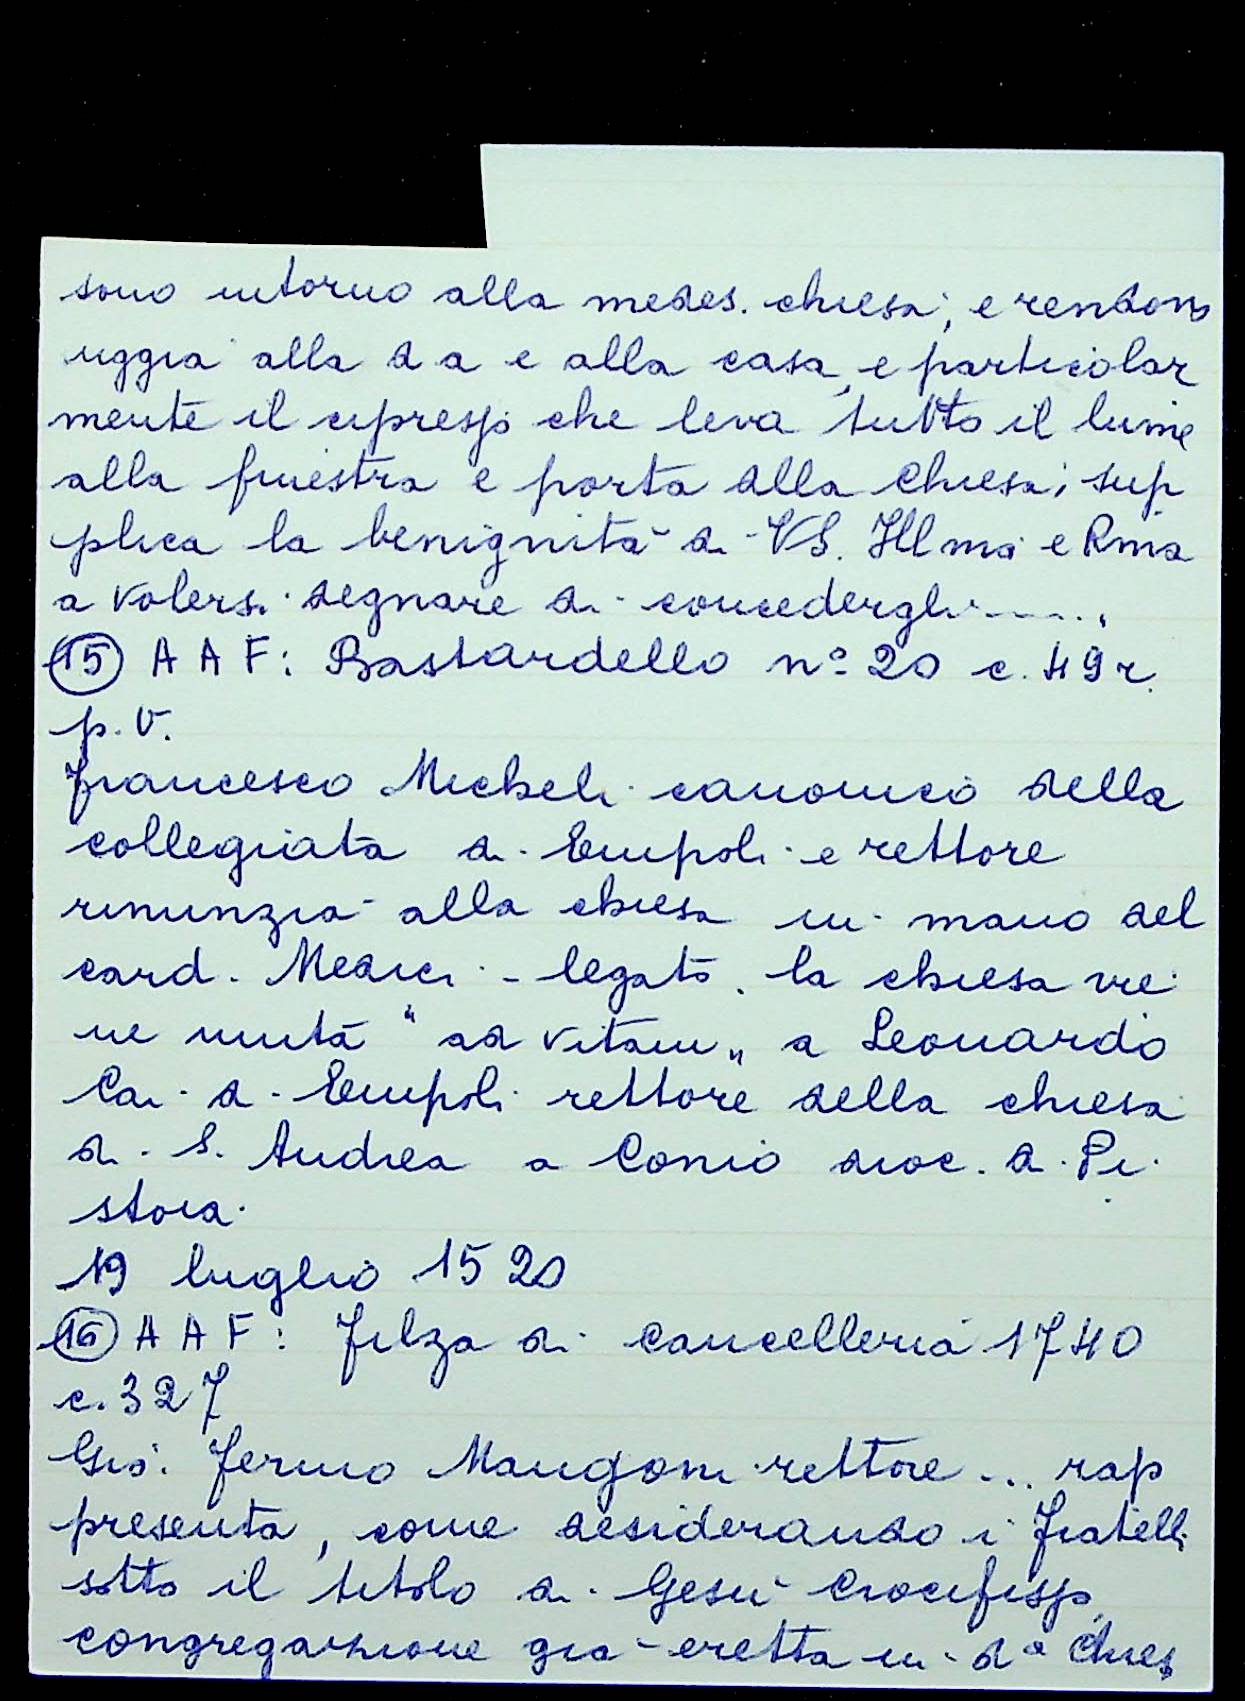 sono intorno alla medes. chiesa, e rendono
uggia alla d a e alla casa, e particolar
mente il cipresso che leva tutto il lume
alla finestra e porta della Chiesa; sup
plica la benignità di VS. Illma e Rma
a volersi degnare di concedergli......"
(15) A A F: Bastardello n° 20 c. 49 r.
p. v.
Francesco Micheli canonico della
collegiata di Empoli e rettore
rinunzia alla chiesa in mano del
card. Medici - legato. la chiesa vie
ne unita "ad vitam" a Leonardo
di Empoli rettore della chiesa
di S. Andrea a Conio dioc. di Pi
stoia.
19 luglio 1520
(16) A A F: Filza di cancelleria 1740
c. 327
Gio. Fermo Mangoni rettore ... rap
presenta, come desiderando i fratelli
sotto il titolo di Gesù Crocifisso,
congregazione già eretta in d a Chies